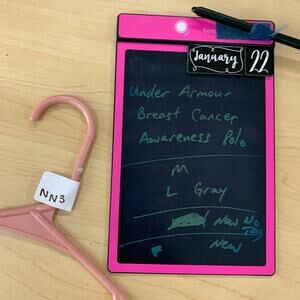 January 22
Under Armour
Breast Cancer
Awareness Polo
M
L Gray
NWW No
Tag
F New
NN3